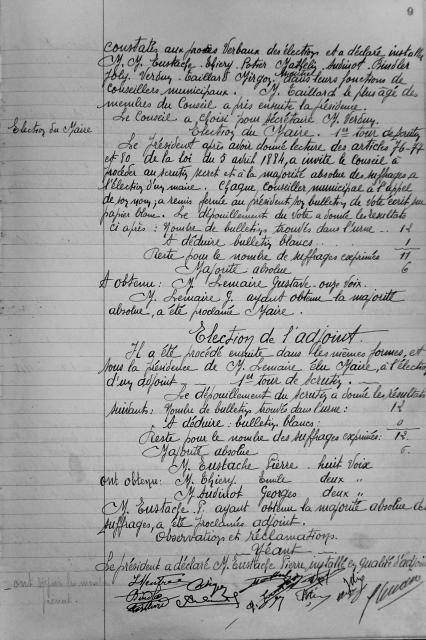 9
constatés aux procès Verbaux des élections et a déclaré installés
M. M. Eustache. Thiery. Potier. Mathelin. Aubinot. Bindler
Joly. Verduy. Taillard. Mirgon. dans leurs fonctions de
conseillers municipaux. M. Taillard le plus âgé des
membres du Conseil a pris ensuite la présidence.
Le Conseil a choisi pour Secrétaire M. Verduy.
Election du Maire
Election du Maire. 1er tour de scrutin
Le Président après avoir donné lecture des articles 76-77
et 80 de la loi du 5 avril 1884, a invité le Conseil à
procéder au scrutin secret et à la majorité absolue des suffrages à
l'élection d'un maire. Chaque conseiller municipal à l'appel
de son nom, a remis fermé au président son bulletin de vote écrit sur
papier blanc. Le dépouillement du vote a donné les résultats
ci après: Nombre de bulletins trouvés dans l'urne.. 12
A déduire bulletins blancs.. 1
Reste pour le nombre de suffrages exprimés 11
Majorité absolue 6
A obtenu: M. Lemaire Gustave. onze Voix.
M. Lemaire G. ayant obtenu la majorité
absolue, a été proclamé Maire.
Election de l'adjoint.
Il a été procédé ensuite dans les mêmes formes, et
sous la présidence de M. Lemaire élu Maire, à l'élection
d'un adjoint. 1er tour de Scrutin.
Le dépouillement du scrutin a donné les résultats
suivants: Nombre de bulletins trouvés dans l'urne: 12
A déduire: bulletins blancs: 0
Reste pour le nombre des suffrages exprimés: 12
Majorité absolue
M. Eustache Pierre. huit Voix
ont obtenu: M. Thiery Emile deux "
M. Aubinot Georges deux "
M. Eustache P. ayant obtenu la majorité absolue des
suffrages, a été proclamé adjoint.
Observations et réclamations.
Néant
Le président a déclaré M. Eustache Pierre, installé en qualité d'adjoint